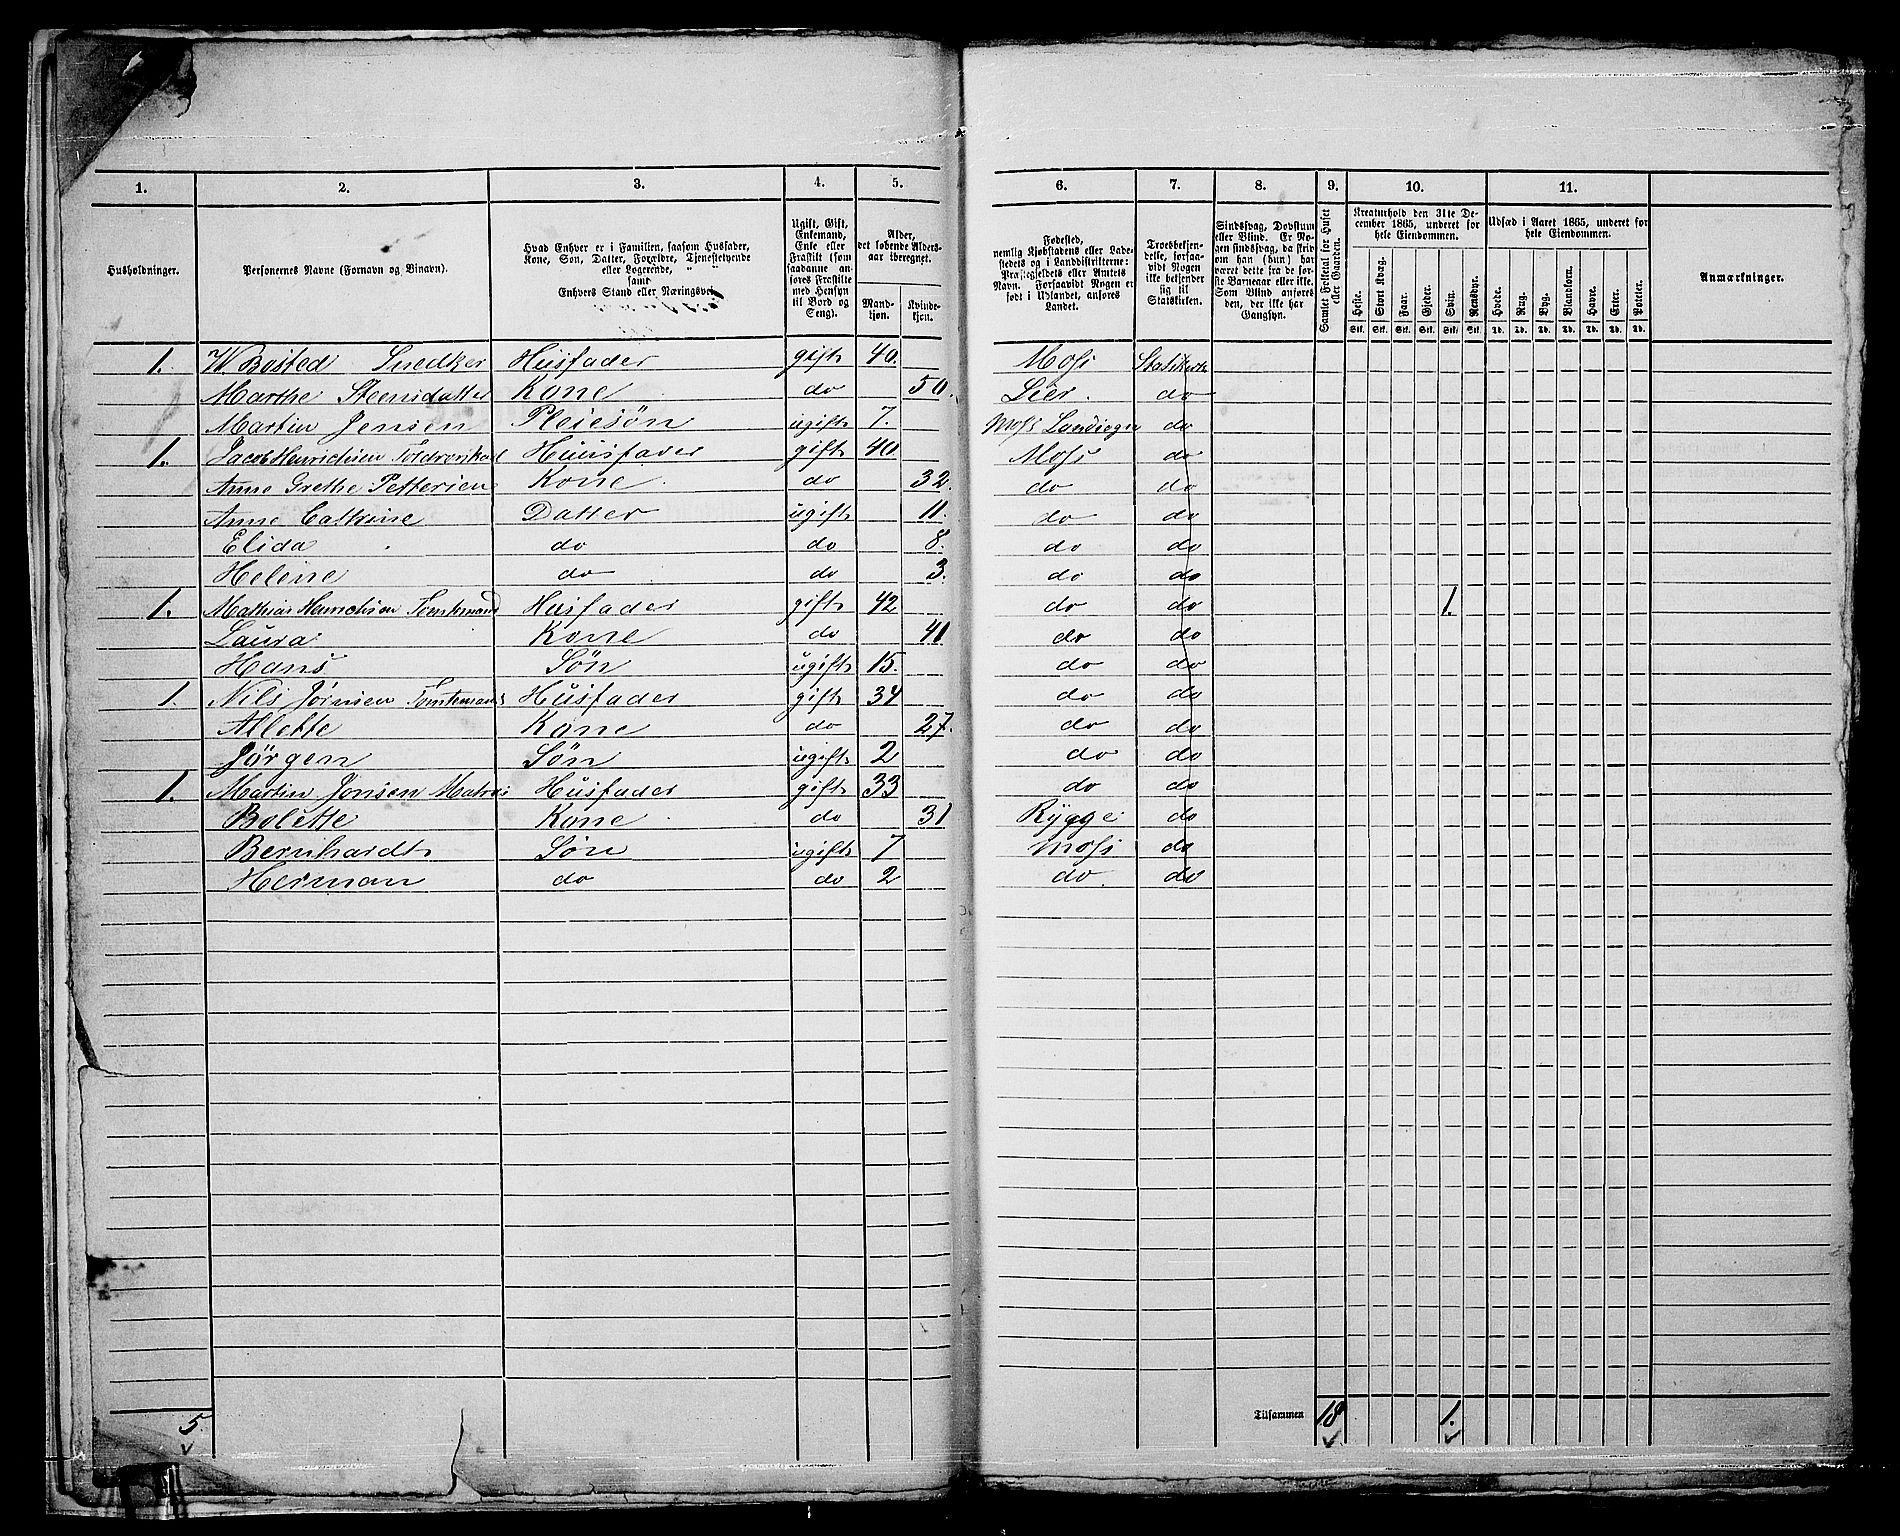 1. 2. 3. 4. 5. 6. 7. 8. 9. 10. 11.
Husholdninger.
Personernes Navne (Fornavn og Binavn).
Hvad Enhver er i Familien, saasom Husfader,
Kone, Søn, Datter, Forældre, Tjenestetyende
eller Logerende,
samt
Enhvers Stand eller Næringsvei.
Ugift, Gift,
Enkemand,
Enke eller
Fraskilt (som
saadanne an-
føres Fraskilte
med Hensyn
til Bord og
Seng).
Alder,
det løbende Alders-
aar iberegnet.
Mand-
kjøn.
Kvinde-
kjøn.
Fødested,
nemlig Kjøbstadens eller Lade-
stedets og i Landdistrikterne:
Præstegjeldets eller Amtets
Navn. Forsaavidt Nogen er
født i Udlandet, anføres
Landet.
Troesbekjen-
delse, forsaa-
vidt Nogen
ikke bekjender
sig til
Statskirken.
Sindssvag, Døvstum
eller Blind. Er No-
gen sindssvag, da skriv
om han (hun) har
været dette fra de før-
ste Barneaar eller ikke.
Som Blind anføres
den, der ikke har
Gangsyn.
Samlet Folketal for Huset
eller Gaarden.
Kreaturhold den 31te De-
cember 1865, underet for
hele Eiendommen.
Heste. Stort Kvæg. Faar. Gjeder. Sviin. Rensdyr.
Stk. Stk. Stk. Stk. Stk. Stk.
Udsæd i Aaret 1865, underet for
hele Eiendommen.
Hvede. Rug. Byg. Blandkorn. Havre. Erter. Poteter.
Td. Td. Td. Td. Td. Td. Td.
Anmærkninger.
1. W Bosted Snedker Husfader gift 40. Moss Statskirke
Marthe Steensdatter Kone do 50. Lier. do
Martin Jensen Pleiesøn ugift 7. Moss do
1. Jacob Henrichsen Husfader gift 40. Moss do
Anne Grethe Pettersen Kone do 32. do do
Anne Cathrine Datter ugift 11. do do
Elida do do 8. do do
Helene do do 3. do do
1. Mathias Henrichsen Tomtemand Husfader gift 42 do do 1.
Laura Kone do 41 do do
Hans Søn ugift 15. do do
1. Nils Jörnsen Tomtemand Husfader gift 34 do do
Allette Kone do 27. do do
Jörgen Søn ugift 2 do do
1. Martin Jonsen Matros Husfader gift 33 do do
Bolette Kone do 31 Rygge do
Bernhardt Søn ugift 7 Moss do
Herman do do 2 do. do
5. Tilsammen 18 1.